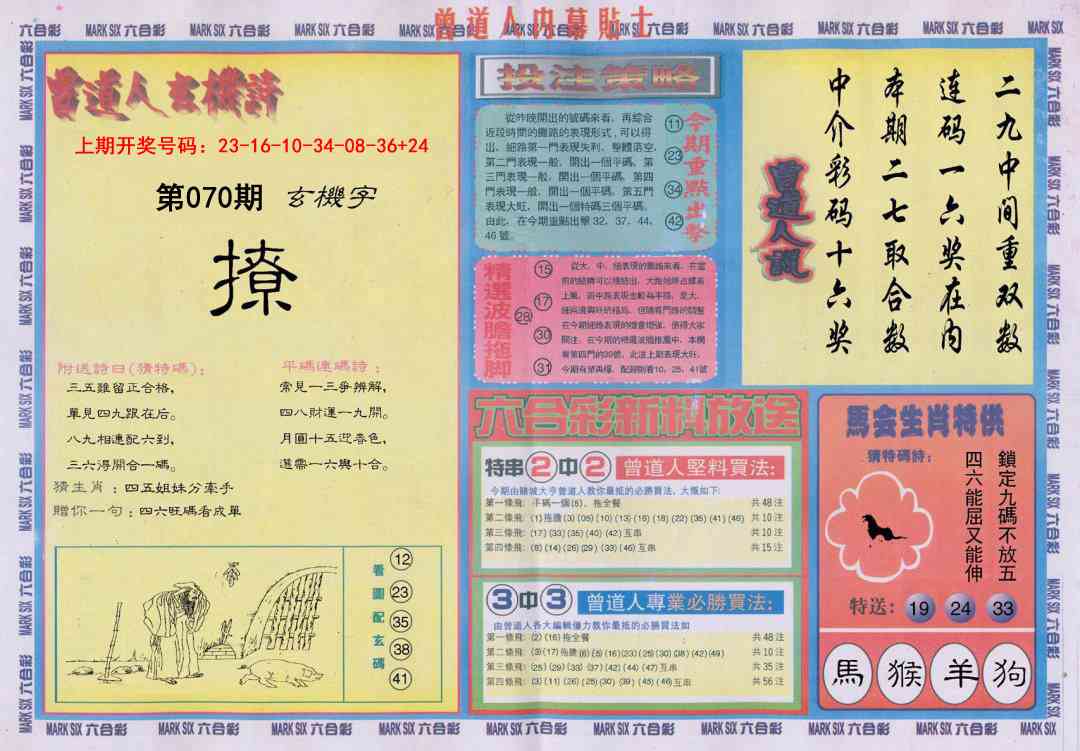 曾道人内幕貼士
MARK SIX 六合彩
曾道人玄機詩
上期开奖号码：23-16-10-34-08-36+24
第070期 玄機字
撩
附送詩曰(猜特碼)：
三五難留正合格，
單見四九跟在后。
八九相連配六到，
三六得開合一碼。
平碼連碼詩：
常見一三爭辨解，
四八財運一九開。
月圓十五迎春色，
還需一六與十合。
猜生肖：四五姐妹分牽手
贈你一句：四六旺碼看成單
看圖配玄碼
12
23
35
38
41
投注策略
從昨晚開出的號碼來看，再綜合
近段時間的攤路的表現形式，可以得
出，細路第一門表現失利，整體落空。
第二門表現一般，開出一個平碼。第
三門表現一般，開出一個平碼。第四
門表現一般，開出一個平碼。第五門
表現大旺，開出一個特碼三個平碼。
由此，在今期重點出擊32、37、44、
46號。
11
23
34
42
今期重點出擊
精選波膽拖脚
15
17
28
30
31
六合彩新料放送
特串2中2 曾道人堅料買法：
今期由賭城大亨曾道人教你最抵的必勝買法，大慨如下：
第一條飛：平碼一個(5)，拖全餐 共48注
第二條飛：(1)拖膽(3)(05)(10)(13)(16)(18)(22)(35)(41)(46) 共10注
第三條飛：(17)(33)(35)(40)(42)互串 共10注
第四條飛：(8)(14)(26)(29)(33)(46)互串 共15注
3中3 曾道人專業必勝買法：
由曾道人各大編輯優力教你最抵的必勝買法如
第一條飛：(2)(16)拖全餐 共48注
第二條飛：(3)(17)拖膽(6)(5)(16)(23)(25)(30)(38)(42)(49) 共10注
第三條飛：(25)(29)(33)(37)(42)(44)(47)互串 共35注
第四條飛：(3)(11)(26)(25)(30)(39)(45)(46)互串 共56注
曾道人說
二九中间重双数
连码一六奖在内
本期二七取合数
中介彩码十六奖
馬会生肖特供
猜特碼詩：
鎖定九碼不放五
四六能屈又能伸
特送：19 24 33
馬 猴 羊 狗